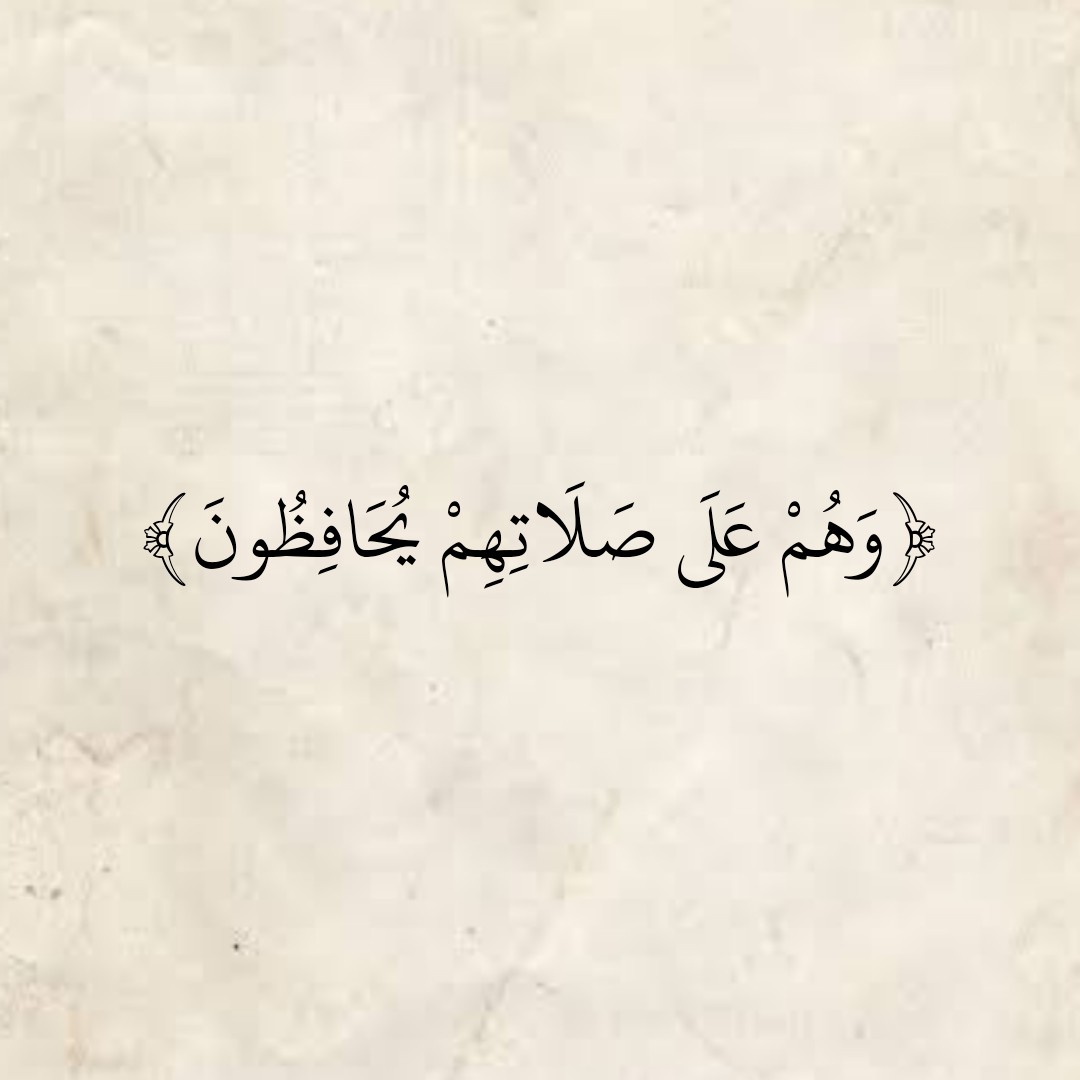 ﴿وَهُمْ عَلَى صَلَاتِهِمْ يُحَافِظُونَ﴾